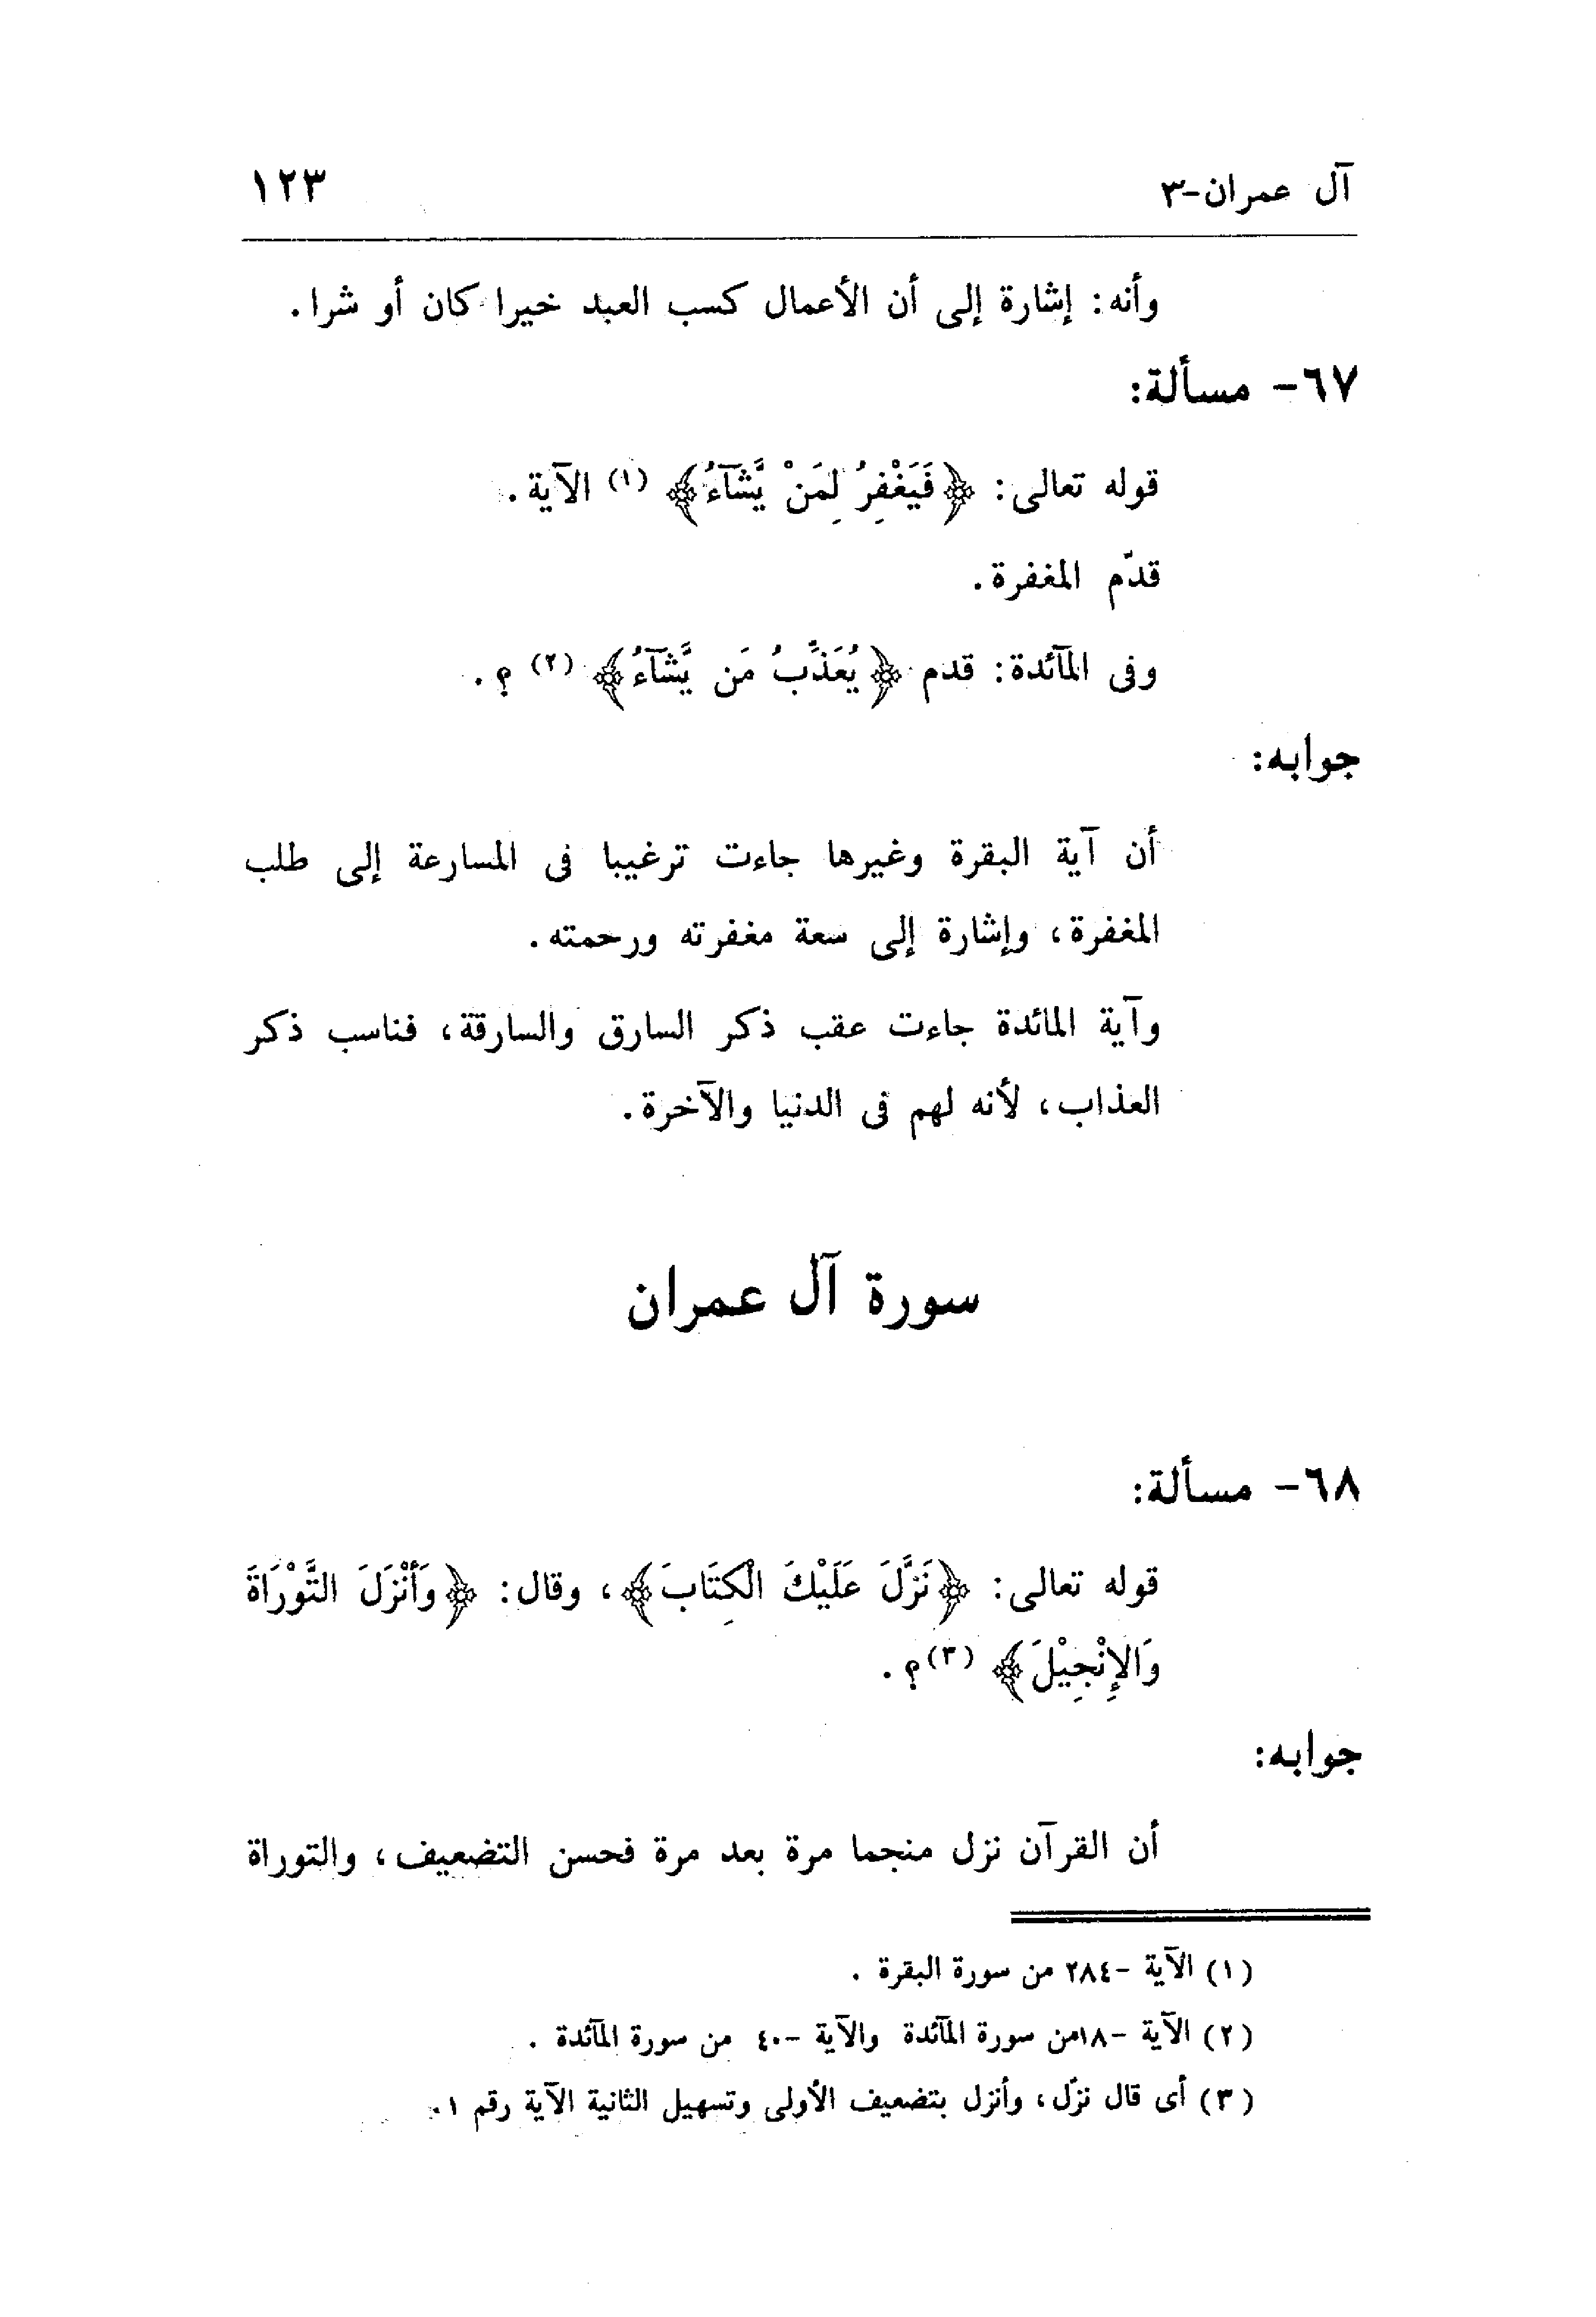 آل عمران-٣ ١٢٣
وأنه: إشارة إلى أن الأعمال كسب العبد خيرا كان أو شرا.
٦٧- مسألة:
قوله تعالى: ﴿فَيَغْفِرُ لِمَنْ يَّشَآءُ﴾ (١) الآية.
قدّم المغفرة.
وفى المآئدة: قدم ﴿يُعَذِّبُ مَن يَّشَآءُ﴾ (٢) ؟.
جوابه:
أن آية البقرة وغيرها جاءت ترغيبا فى المسارعة إلى طلب
المغفرة، وإشارة إلى سعة مغفرته ورحمته.
وآية المائدة جاءت عقب ذكر السارق والسارقة، فناسب ذكر
العذاب، لأنه لهم فى الدنيا والآخرة.
سورة آل عمران
٦٨- مسألة:
قوله تعالى: ﴿نَزَّلَ عَلَيْكَ الْكِتَابَ﴾، وقال: ﴿وَأَنْزَلَ التَّوْرَاةَ
وَالإِنْجِيْلَ﴾ (٣)؟.
جوابه:
أن القرآن نزل منجما مرة بعد مرة فحسن التضعيف، والتوراة
(١) الآية -٢٨٤ من سورة البقرة .
(٢) الآية -١٨من سورة المآئدة والآية -٤٠ من سورة المآئدة .
(٣) أى قال نزّل، وأنزل بتضعيف الأولى وتسهيل الثانية الآية رقم ١.